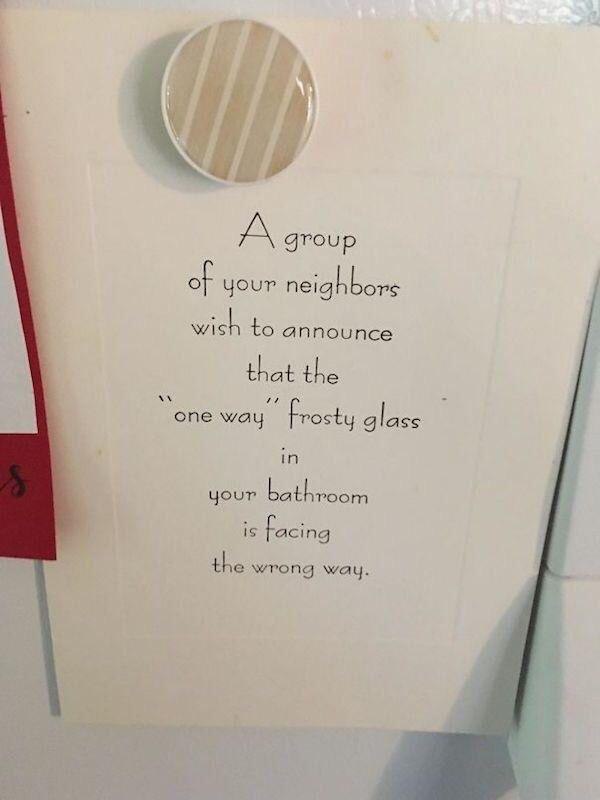 A group
of your neighbors
wish to announce
that the
"one way" frosty glass
in
your bathroom
is facing
the wrong way.
s